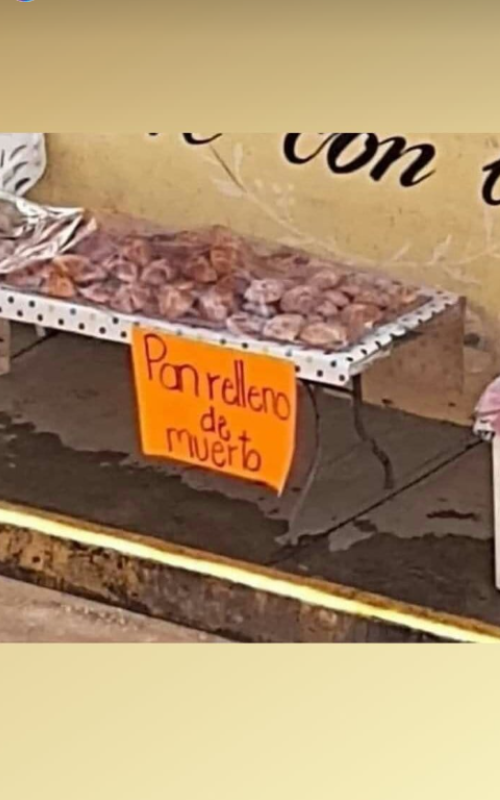 con
Pan relleno
de
muerto